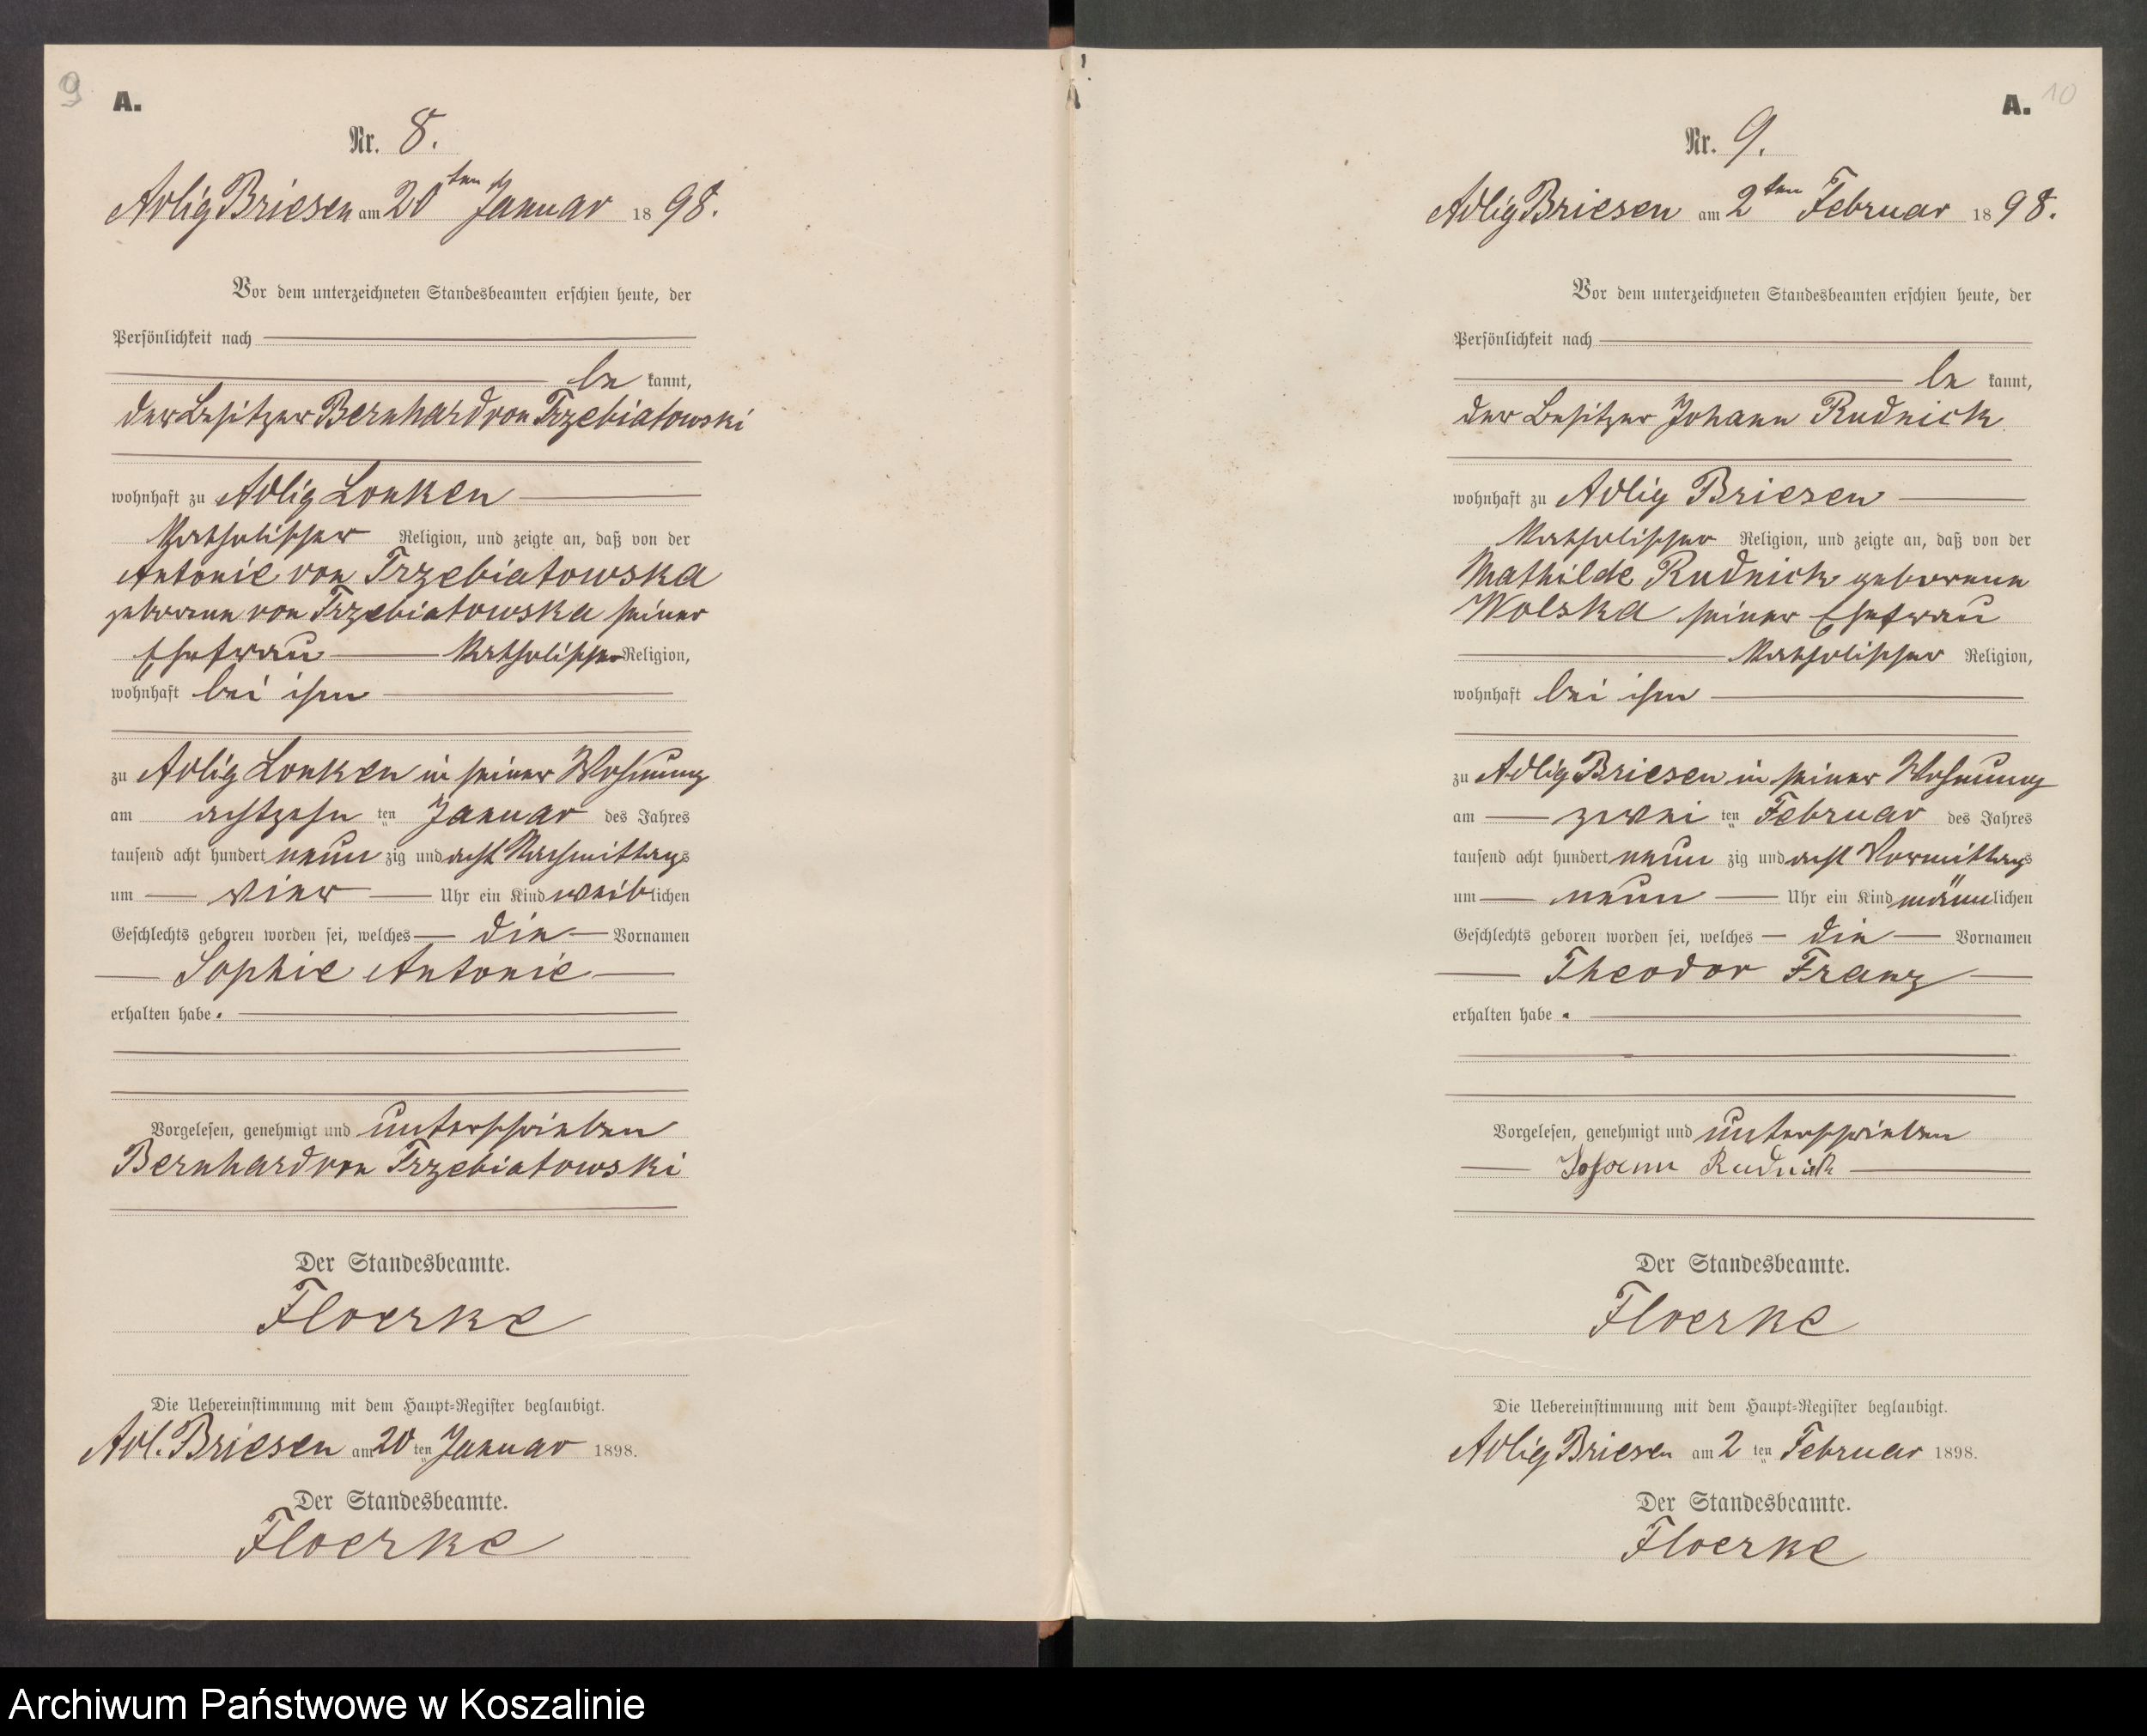 9
A.
Nr. 8.
Adlig Briesen am 20ten Januar 1898.
Vor dem unterzeichneten Standesbeamten erschien heute, der
Persönlichkeit nach
be kannt,
der Besitzer Bernhard von Trzebiatowski
wohnhaft zu Adlig Lonken
katholischer Religion, und zeigte an, daß von der
Antonie von Trzebiatowska
geborene von Trzebiatowska seiner
Ehefrau katholischer Religion,
wohnhaft bei ihm
zu Adlig Lonken in seiner Wohnung
am achtzehn ten Januar des Jahres
tausend acht hundert neun zig und acht Nachmittags
um vier Uhr ein Kind weiblichen
Geschlechts geboren worden sei, welches die Vornamen
Sophie Antonie
erhalten habe.
Vorgelesen, genehmigt und unterschrieben
Bernhard von Trzebiatowski
Der Standesbeamte.
Floerke
Die Uebereinstimmung mit dem Haupt-Register beglaubigt.
Adl. Briesen am 20 ten Januar 1898.
Der Standesbeamte.
Floerke
A. 10
Nr. 9.
Adlig Briesen am 2ten Februar 1898.
Vor dem unterzeichneten Standesbeamten erschien heute, der
Persönlichkeit nach
be kannt,
der Besitzer Johann Rudnick
wohnhaft zu Adlig Briesen
katholischer Religion, und zeigte an, daß von der
Mathilde Rudnick geborene
Wolska seiner Ehefrau
katholischer Religion,
wohnhaft bei ihm
zu Adlig Briesen in seiner Wohnung
am zwei ten Februar des Jahres
tausend acht hundert neun zig und acht Vormittags
um neun Uhr ein Kind männlichen
Geschlechts geboren worden sei, welches die Vornamen
Theodor Franz
erhalten habe.
Vorgelesen, genehmigt und unterschrieben
Johann Rudnick
Der Standesbeamte.
Floerke
Die Uebereinstimmung mit dem Haupt-Register beglaubigt.
Adlig Briesen am 2 ten Februar 1898.
Der Standesbeamte.
Floerke
Archiwum Państwowe w Koszalinie